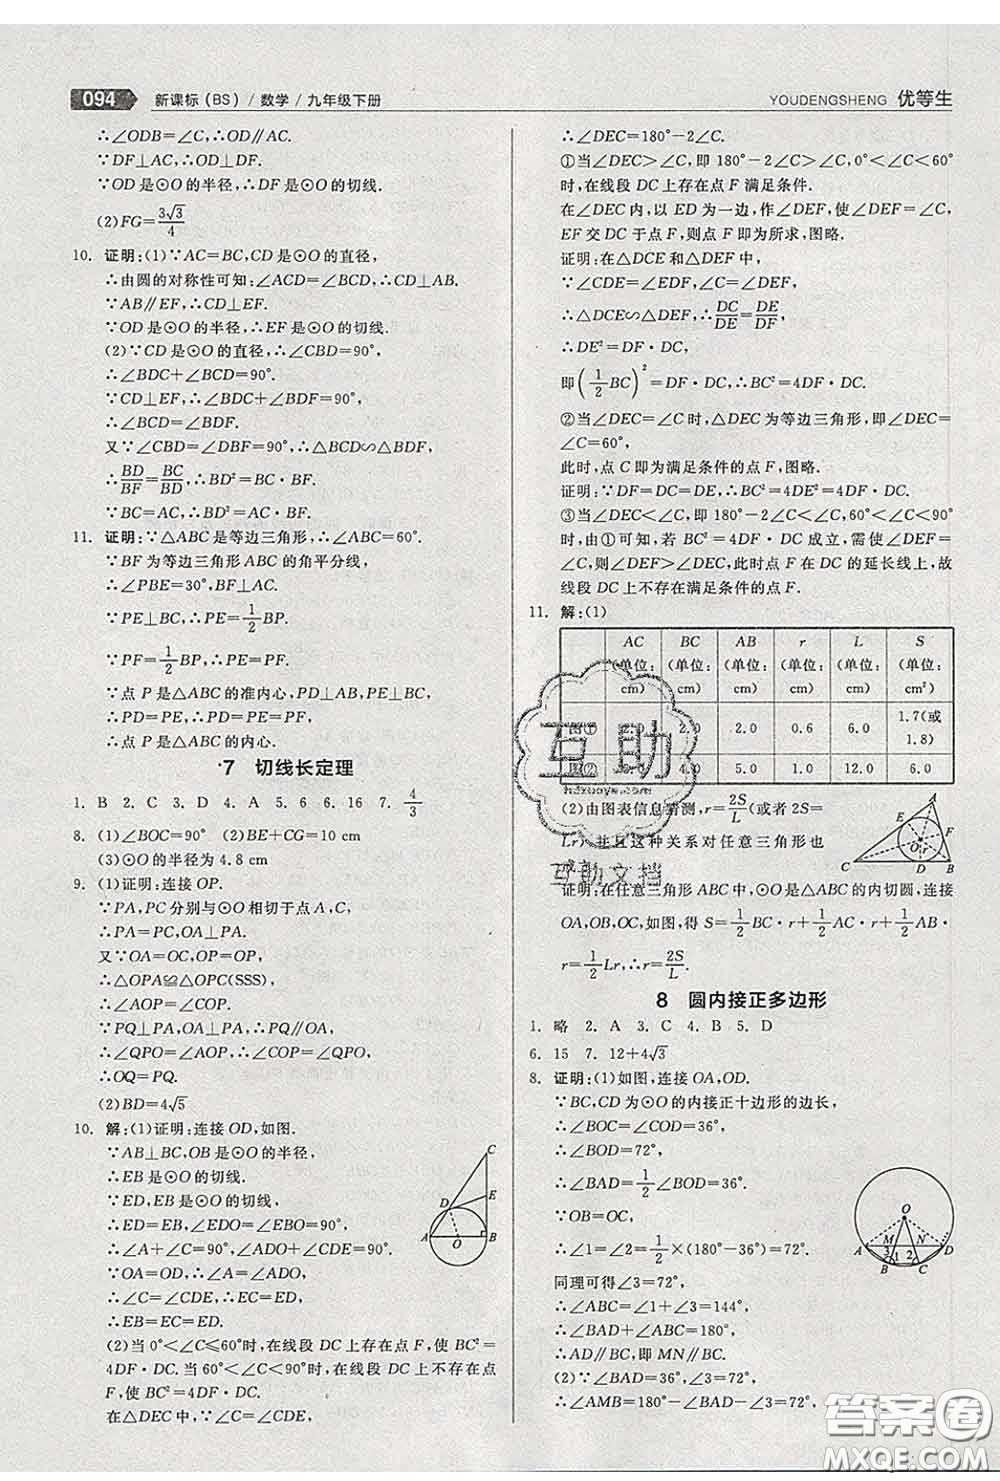 094 新课标(BS)/数学/九年级下册
YOUDENGSHENG 优等生
∴∠ODB=∠C,∴OD∥AC.
∵DF⊥AC,∴OD⊥DF.
∵OD是⊙O的半径,∴DF是⊙O的切线.
(2)FG=3√3/4
10. 证明:(1)∵AC=BC,CD是⊙O的直径,
∴由圆的对称性可知:∠ACD=∠BCD,CD⊥AB.
∵AB∥EF,∴CD⊥EF.
∵OD是⊙O的半径,∴EF是⊙O的切线.
(2)∵CD是⊙O的直径,∴∠CBD=90°,
∴∠BDC+∠BCD=90°.
∵CD⊥EF,∴∠BDC+∠BDF=90°,
∴∠BCD=∠BDF.
又∵∠CBD=∠DBF=90°,∴△BDC∽△BFD,
∴BD/BF=BC/BD,∴BD²=BC·BF.
∵BC=AC,∴BD²=AC·BF.
11. 证明:∵△ABC是等边三角形,∴∠ABC=60°.
∵BF为等边三角形ABC的角平分线,
∴∠PBE=30°,BF⊥AC.
∵PE⊥BC,∴PE=1/2BP.
∵PF=1/2BP,∴PE=PF.
∵点P是△ABC的准内心,PD⊥AB,PE⊥BC,
∴PD=PE,∴PD=PE=PF,
∴点P是△ABC的内心.
*7 切线长定理
1. B 2. C 3. D 4. A 5. 6 6. 16 7. 4/3
8. (1)∠BOC=90° (2)BE+CG=10 cm
(3)⊙O的半径为4.8 cm
9. (1)证明:连接OP.
∵PA,PC分别与⊙O相切于点A,C,
∴PA=PC,OA⊥PA.
又∵OA=OC,OP=OP,
∴△OPA≌△OPC(SSS),
∴∠AOP=∠COP.
∵PQ⊥PA,OA⊥PA,∴PQ∥OA,
∴∠QPO=∠AOP,∴∠QPO=∠COP,
∴OQ=PQ.
(2)BD=4√5
10. 解:(1)证明:连接OD,如图.
∵AB⊥BC,OB是⊙O的半径,
∴EB是⊙O的切线.
∵ED,EB是⊙O的切线,
∴ED=EB,∠ODE=90°,
∴∠A+∠C=90°,∠ADO+∠CDE=90°.
∵OA=OD,∴∠A=∠ADO,
∴∠C=∠CDE,∴ED=EC,
∴EB=EC.
(2)当0°<∠C≤60°时,在线段DC上存在点F,使BC²=
4DF·DC.当60°<∠C<90°时,在线段DC上不存在点
F,使BC²=4DF·DC.
在△DEC中,∵∠C=∠CDE,
C E D A O B
∴∠DEC=180°-2∠C.
①当∠DEC>∠C,即180°-2∠C>∠C,0°<∠C<60°
时,在线段DC上存在点F满足条件.
在∠DEC内,以ED为一边,作∠DEF,使∠DEF=∠C,
EF交DC于点F,则点F即为所求,图略.
证明:在△DCE和△DEF中,
∵∠CDE=∠EDF,∠C=∠DEF,
∴△DCE∽△DEF,∴DC/DE=DE/DF,
∴DE²=DF·DC,
即(1/2BC)²=DF·DC,∴BC²=4DF·DC.
②当∠DEC=∠C时,△DEC为等边三角形,即∠DEC=
∠C=60°,
此时,点C即为满足条件的点F,图略.
证明:∵DF=DC=DE,∴BC²=4DE²=4DF·DC.
③当∠DEC<∠C,即180°-2∠C<∠C,60°<∠C<90°
时,由①可知,若BC²=4DF·DC成立,需使∠DEF=
∠C,则∠DEF>∠DEC,此时点F在DC的延长线上,故
线段DC上不存在满足条件的点F.
11. 解:(1)
AC(单位:cm) BC(单位:cm) AB(单位:cm) r(单位:cm) L(单位:cm) S(单位:cm²)
2.0 2.0 0.6 6.0 1.7(或1.8)
4.0 5.0 1.0 12.0 6.0
(2)由图表信息猜测,r=2S/L(或者2S=
Lr),并且这种关系对任意三角形也
成立.
证明:在任意三角形ABC中,⊙O是△ABC的内切圆,连接
OA,OB,OC,如图,得S=1/2BC·r+1/2AC·r+1/2AB·
r=1/2Lr,∴r=2S/L.
A E F O r C D B
8 圆内接正多边形
1. 略 2. A 3. C 4. B 5. D
6. 15 7. 12+4√3
8. 证明:(1)如图,连接OA,OD.
∵BC,CD为⊙O的内接正十边形的边长,
∴∠BOC=∠COD=36°,
∴∠BOD=72°,
∴∠BAD=1/2∠BOD=36°.
∵OB=OC,
∴∠1=∠2=1/2×(180°-36°)=72°,
同理可得∠3=72°,
∴∠ABC=∠1+∠3=144°,
∴∠BAD+∠ABC=180°,
∴AD∥BC,即MN∥BC.
(2)∵∠BAD=36°,∠3=72°,
∴∠AMB=180°-∠BAD-∠3=72°,
O M N A D 3 1 2 B C
互助
hdzuoye.com
互助文档
答案圈
MXQE.COM